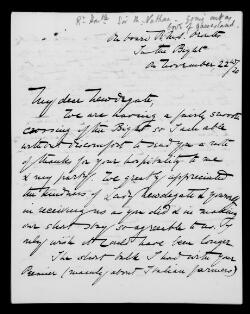 Sir M. Nathan going out as
Govr of Queensland
On board R.M.S. Orvieto
In the Bight
on November 22nd/20
My dear Newdegate,
We are having a fairly smooth
crossing of the Bight so I am able
without discomfort to send you a note
of thanks for your hospitality to me
& my party. We greatly appreciated
the kindness of Lady Newdegate & yourself
in receiving us as you did & in making
our short stay so agreeable to us. I
only wish it could have been longer.
The short talk I had with your
Premier (mainly about Italian farmers)